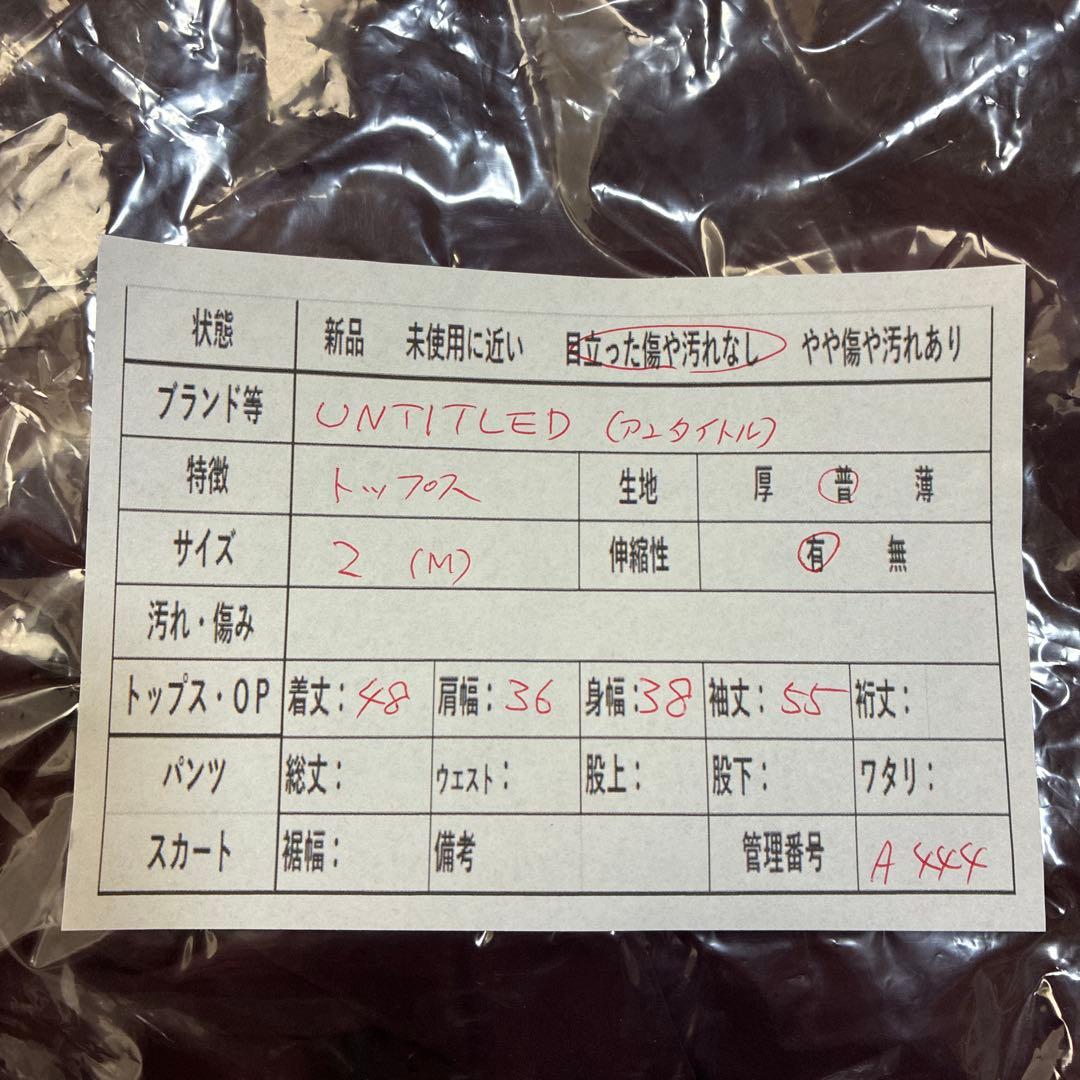 状態 新品 未使用に近い 目立った傷や汚れなし やや傷や汚れあり
ブランド等 UNTITLED (アンタイトル)
特徴 トップス 生地 厚 普 薄
サイズ 2 (M) 伸縮性 有 無
汚れ・傷み
トップス・OP 着丈: 48 肩幅: 36 身幅: 38 袖丈: 55 裄丈:
パンツ 総丈: ウエスト: 股上: 股下: ワタリ:
スカート 裾幅: 備考 管理番号 A 444